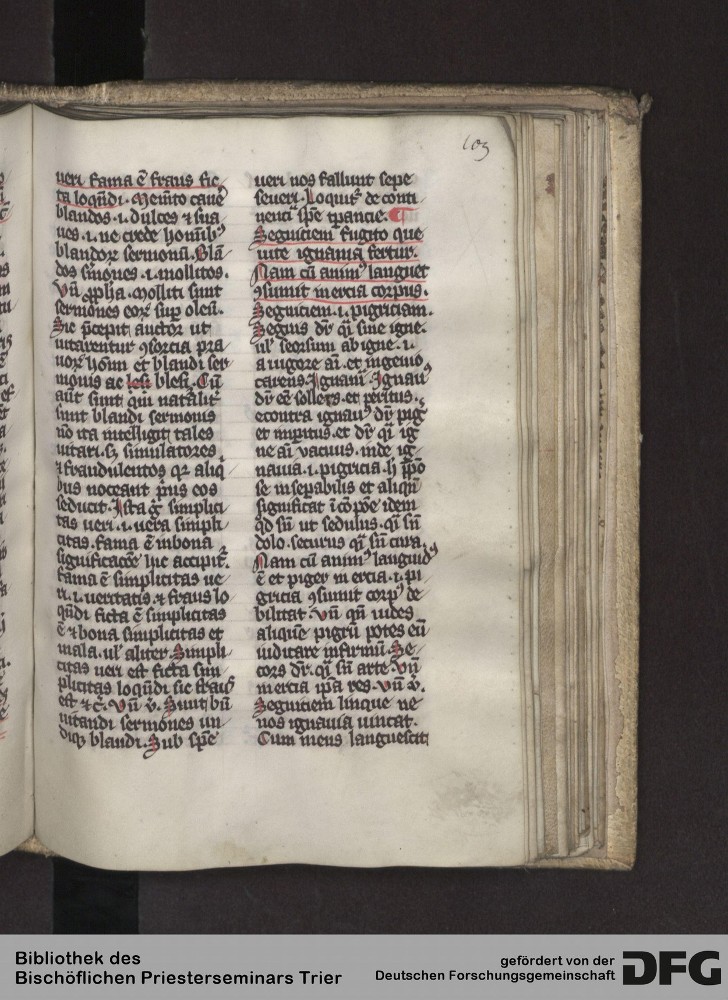 103
ueri fama ē fraus fic
ta loqndi. Memto caue
blandos .i. dulces ⁊ sua
ues .i. ne crede hominibꝰ
blandorꝝ sermonū. Blā
dos smones .i. mollitos.
Vn ppha. Molliti sunt
sermones eorꝝ sup oleū.
Sic pcepit auctor ut
uitarentur ꝯsorcia pra
uorꝝ hōm et blandi ser
monis ac lesi blesi. Cū
aut sunt qui natalit
sunt blandi sermonis
nō ita intelligit tales
uitari. sꝫ simulatores
⁊ fraudulentos qꝛ aliq
bus noceant pus eos
seducit. Ista g simplici
tas ueri .i. uera simpli
citas. fama ē in bona
significacōe hic accipit.
fama ē simplicitas ue
ri .i. ueritatis. ⁊ fraus lo
qndi ficta ē simplicitas
ē ⁊ bona simplicitas et
mala. ul aliter. Simpli
citas ueri est ficta sim
plicitas loqndi sic fraus
est ⁊ c̄. Vn v̄. Sunt bn
uitandi sermones un
diqꝫ blandi. Sub spe
ueri nos fallunt sepe
seueri. Loquit de conti
nenti spe tpancie.
Segniciem fugito que
uite ignauia fertur.
Nam cū animꝰ languet
ꝯsumit inercia corpus.
Segniciem .i. pigriciam.
Segnis dr qi sine igne.
ul seorsum ab igne .i.
a uigore ai. et ingenio
carens. Ignaui. Ignaui
dr eē sollers. et peritus.
econtra ignauꝰ dr pigr
et impitus. et dr qi ig
ne ai uacuus. inde ig
nauia .i. pigricia. h ppo
se insepabilis et aliqn
significat ī cōpoe idem
qd sn ut sedulus. qi sn
dolo. securus qi sn cura.
Nam cū animꝰ languidꝰ
ē et piger in ercia .i. pi
gricia ꝯsumit corpꝰ de
bilitat. Vn qn uides
aliquē pigrū potes eū
iudicare infirmū. Se
cors dr. qi sn arte. Vn
inercia ipa res. Vn v̄.
Segniciem linque ne
nos ignauia uincat.
Cum mens languescit
Bibliothek des
Bischöflichen Priesterseminars Trier
gefördert von der
Deutschen Forschungsgemeinschaft
DFG